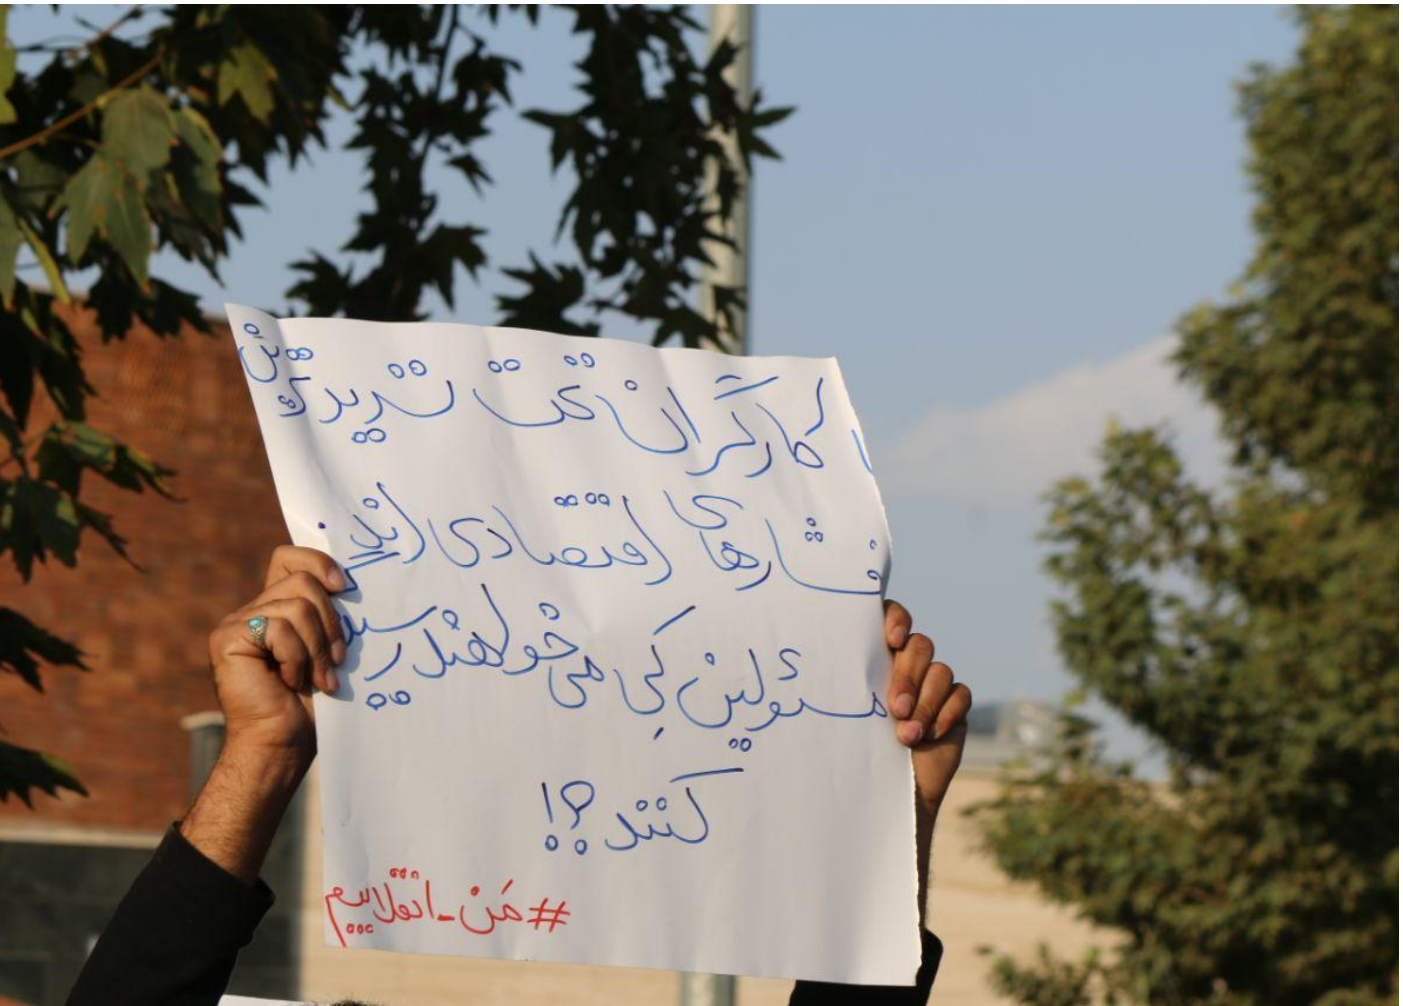 کارگران تحت شدیدترین
فشارهای اقتصادی اند.
مسئولین کی می‌خواهند رسیدگی
کنند؟!
#من_انقلابیم